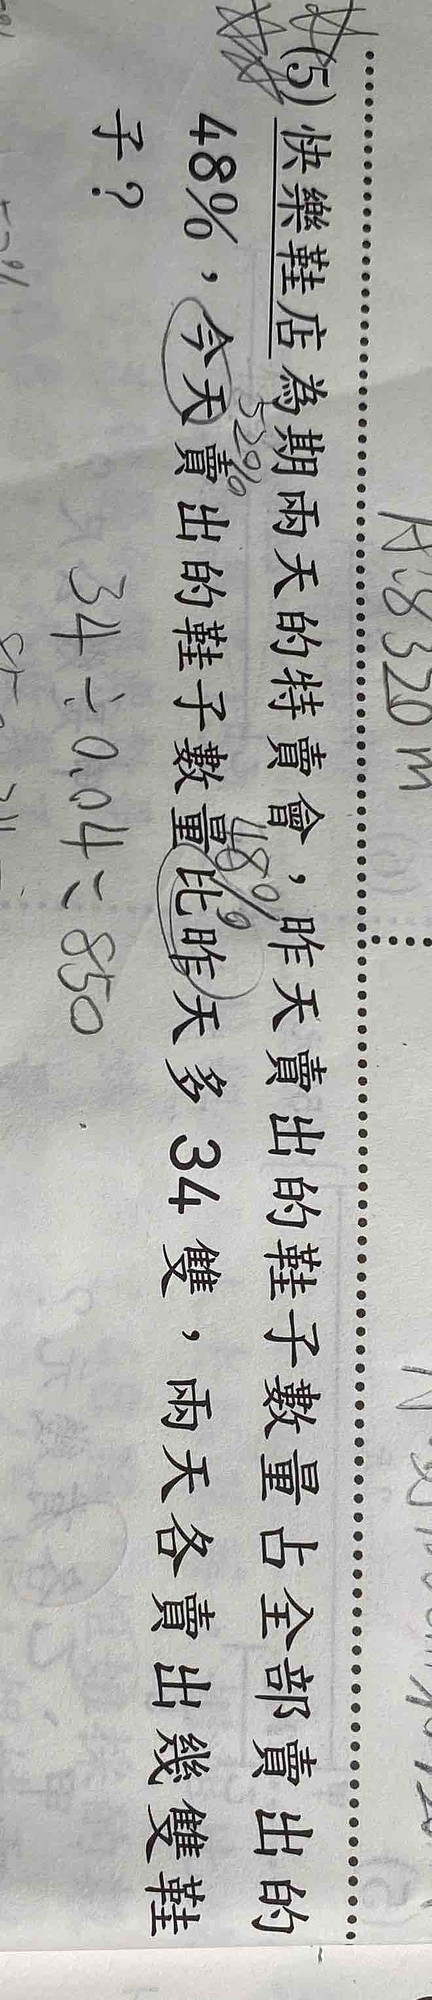 A:8320m
(5)快樂鞋店為期兩天的特賣會，昨天賣出的鞋子數量占全部賣出的
52%
48%
48%，今天賣出的鞋子數量比昨天多34雙，兩天各賣出幾雙鞋
子？
34÷0.04=850